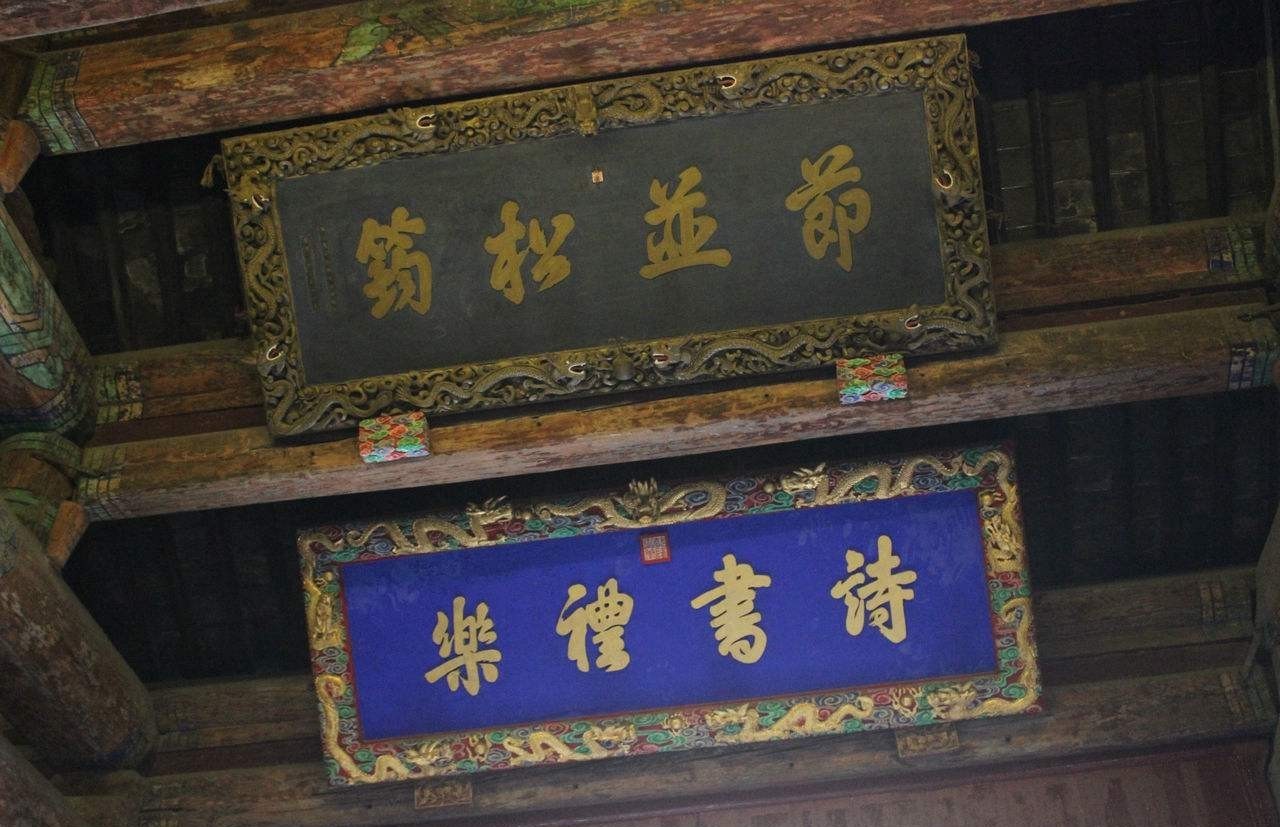 節並松筠
詩書禮樂